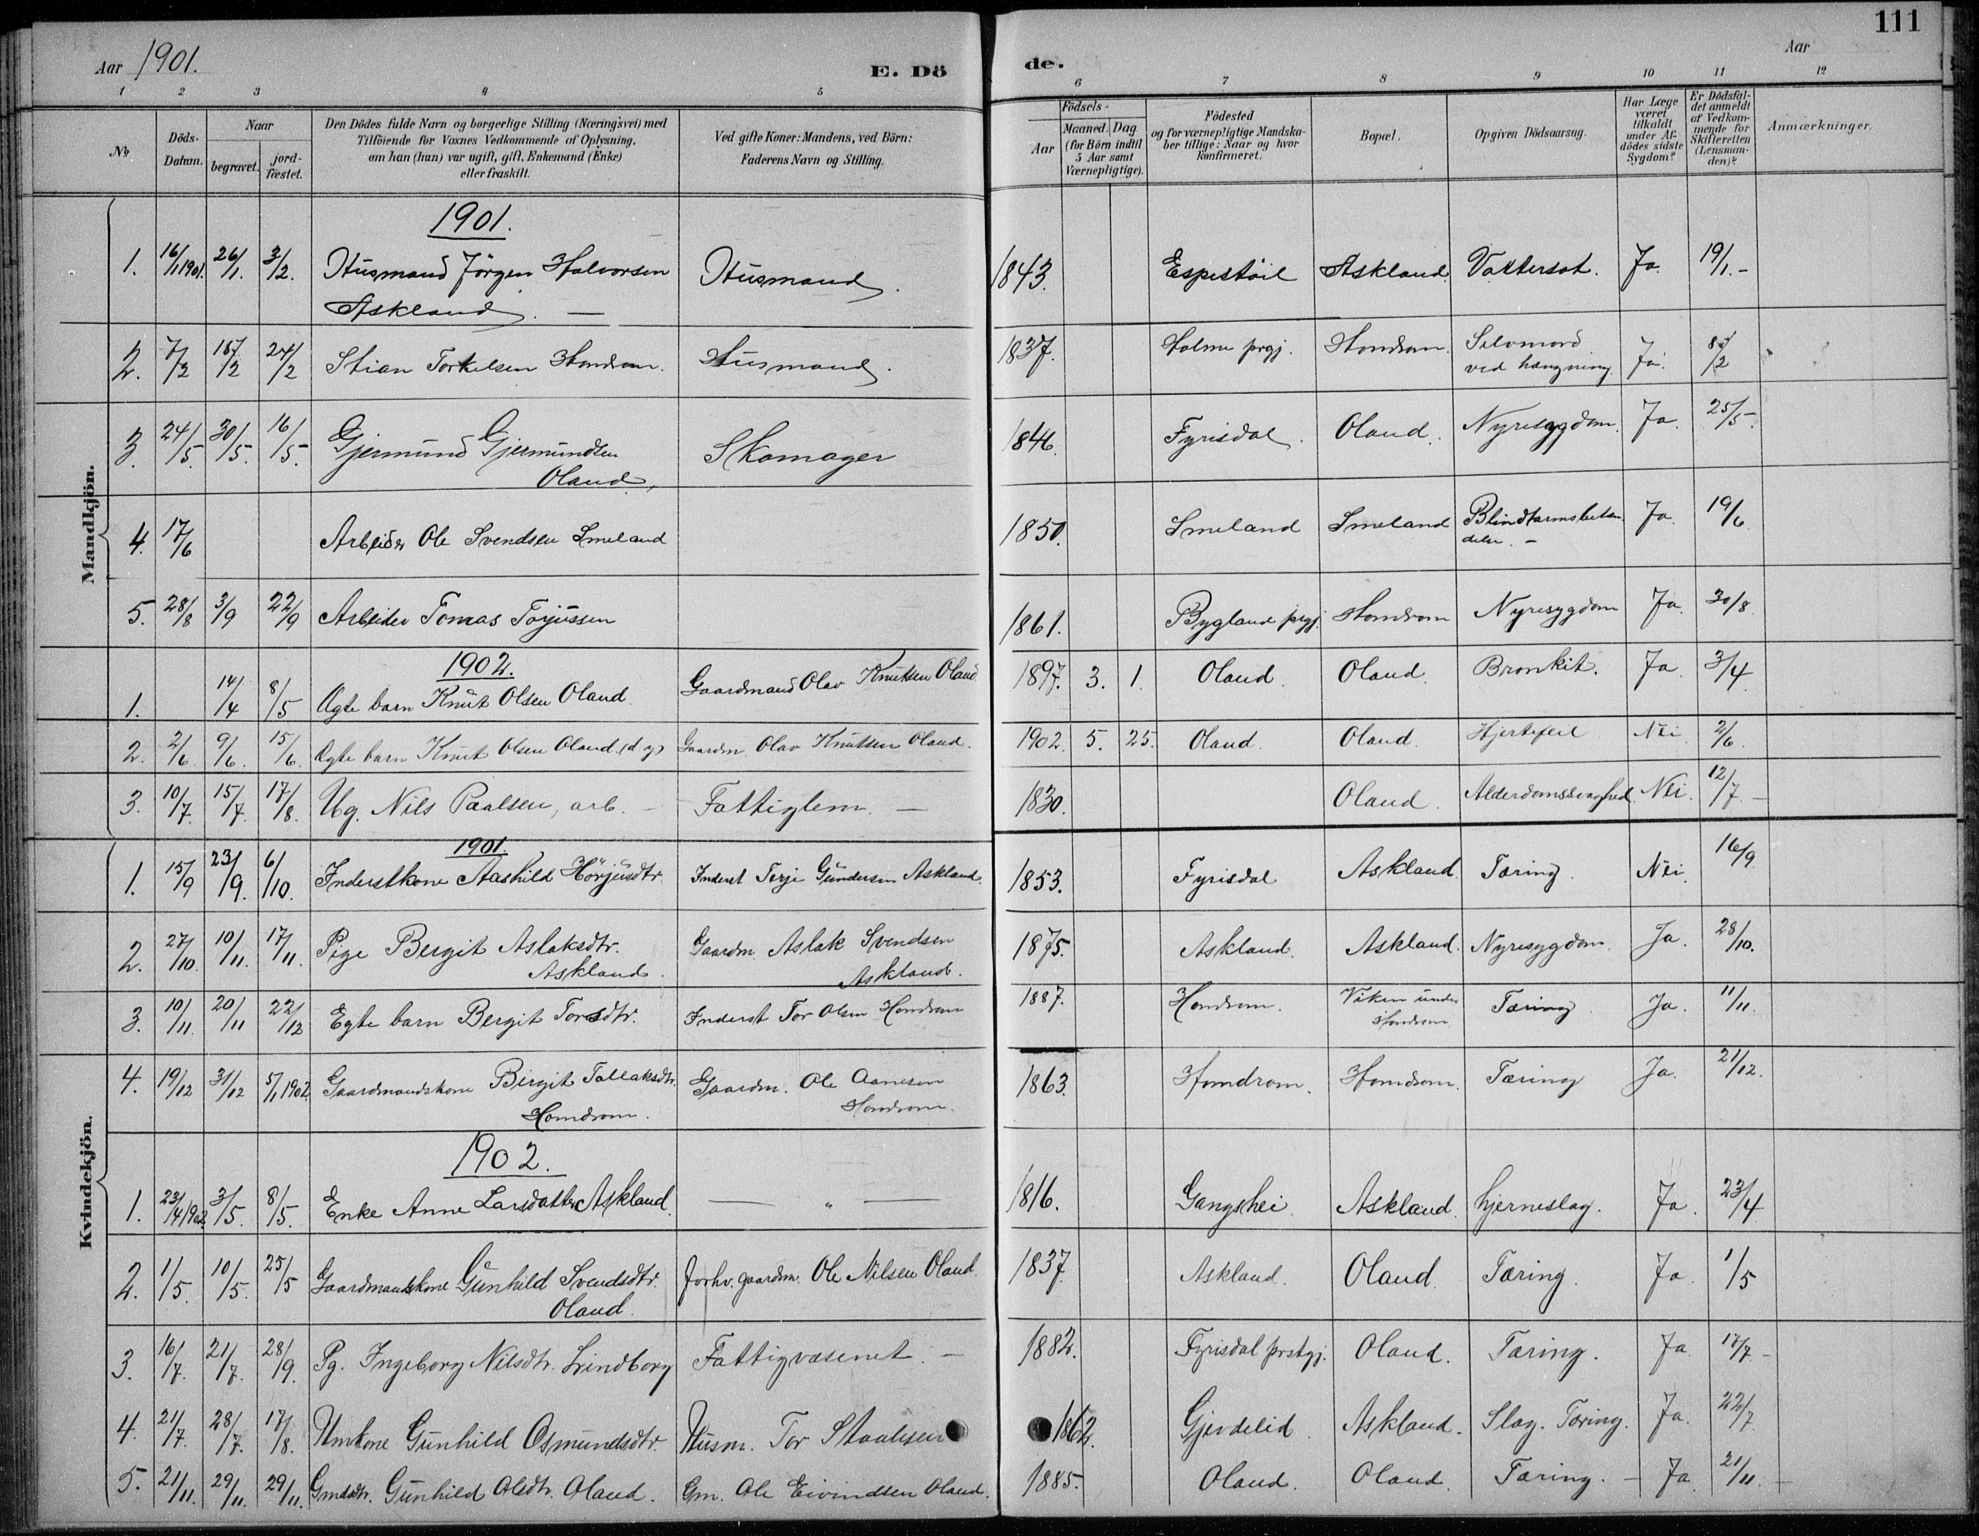 Aar 1901.
E. Dö
de.
Aar
111
1 2 3 4 5 6 7 8 9 10 11 12
No
Döds-Datum.
Naar
begravet.
jord-fæstet.
Den Dödes fulde Navn og borgerlige Stilling (Næringsvei) med
Tilföiende for Voxnes Vedkommende af Oplysning,
om han (hun) var ugift, gift, Enkemand (Enke)
eller fraskilt.
Ved gifte Koner: Mandens, ved Börn:
Faderens Navn og Stilling.
Födsels-
Aar
Maaned. Dag
(for Börn indtil
5 Aar samt
Værnepligtige).
Födested
og for værnepligtige Mandska-
ber tillige: Naar og hvor
konfirmeret.
Bopæl.
Opgiven Dödsaarsag.
Har Læge
været
tilkaldt
under Af-
dödes sidste
Sygdom?
Er Dödsfal-
det anmeldt
af Vedkom-
mende for
Skifteretten
(Lensman-
den)?
Anmærkninger.
Mandkjön.
1901.
1. 16/1 1901. 26/1. 3/2. Husmand Jörgen Halvorsen Husmand. 1843. Espestöil Askland Vattersot. Ja. 19/1. -
Askland. —
2. 7/2 /2 24/2 Stian Torkelsen Homdrom. Husmand. 1837. Holme prgj. Homdrom. Selvmord Ja. /2
ved hængning.
3. 24/5. 30/5. 16/5. Gjermund Gjermundsen Skomager 1846. Fyrisdal. Oland. Nyresygdom. Ja. 25/5.
Oland.
4. 17/6 Arbeider Ole Svendsen Smeland 1850. Smeland Smeland Blindtarmsbetæn Ja. 19/6.
delse. -
5. 28/8 3/9 22/9 Arbeider Tomas Torjussen 1861. Bygland prgj. Homdrom Nyresygdom Ja. 30/8.
1902.
1. 14/4 8/5 Ægte barn Knut Olsen Oland. Gaardmand Olav Knutsen Oland 1897. 3. 1. Oland. Oland. Bronkit. Ja. 3/4
2. 2/6 9/6. 15/6. Ægte barn Knut Olsen Oland (d. y.) Gaardm. Olav Knutsen Oland. 1902. 5. 25. Oland. Oland. Hjertefeil Nei 2/6.
3. 10/7. 15/7. 17/8. Ug. Nils Paalsen, arb. - Fattiglem. — 1830. Oland. Alderdomssvaghed. Nei. 12/7. —
Kvindekjön.
1901.
1. 15/9 23/9. 6/10. Inderstkone Aashild Hörjusdtr. Inderst Terje Gundersen Askland. 1853. Fyrisdal Askland. Tæring. Nei. 16/9
2. 27/10. 10/11. 17/11. Pige Bergit Aslaksdtr. Gaardm Aslak Svendsen 1875. Askland. Askland. Nyresygdom. Ja. 28/10.
Askland. Askland.
3. 10/11. 20/11 22/12 Egte barn Bergit Torsdtr. Inderst Tor Olsen Homdrom 1887. Homdrom. Viken under Tæring. Ja. 11/11.
Homdrom
4. 19/12 31/12 5/1 1902. Gaardmandskone Birgit Tallaksdtr. Gaardm. Ole Aanesen 1863. Homdrom. Homdrom. Tæring Ja. 21/12.
Homdrom. Homdrom.
1902.
1. 23/4 1902 3/5. 8/5. Enke Anne Larsdatter Askland. — „ — 1816. Gangshei. Askland. hjerneslag. Ja. 23/4
2. 1/5. 10/5. 25/5 Gaardmandskone Gunhild Svendsdtr. forhv. gaardm. Ole Nilsen Oland. 1837. Askland. Oland. Tæring. Ja. 1/5
Oland.
3. 16/7. 21/7. 28/9. Pg. Ingeborg Nilsdtr. Lindborg Fattigvæsenet. — 1882. Fyrisdal prstgj. Oland. Tæring. Ja. 17/7 -
4. 21/7. 28/7. 17/8. Gunhild Osmundsdtr. Husm. Tor Staalesen 1862. Gjevdelid. Askland. Slag. Tæring. Ja. 22/7
5. 21/11. 29/11. 29/11. Gmdsdtr. Gunhild Olsdtr. Oland. Gm. Ole Eivindsen Oland. 1885. Oland. Oland. Tæring. — Ja. 21/11. —